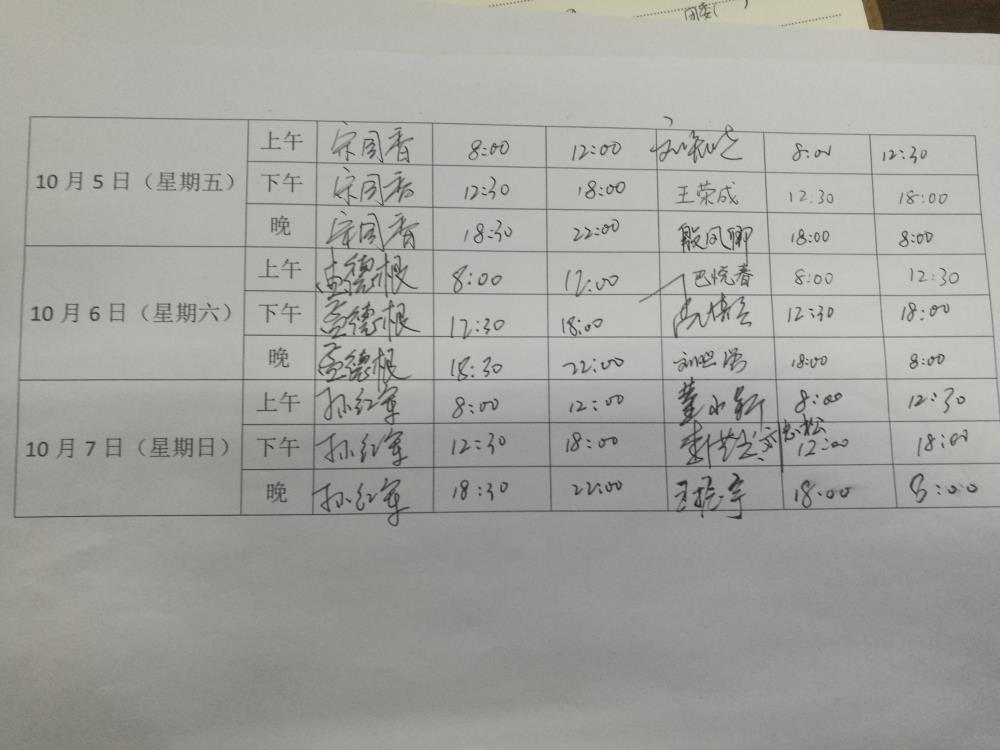 团委
上午 宋同香 8:00 12:00 8:00 12:30
10月5日（星期五） 下午 宋同香 12:30 18:00 王荣成 12:30 18:00
晚 宋同香 18:30 22:00 殷凤卿 18:00 8:00
上午 孟德根 8:00 12:00 巴悦春 8:00 12:30
10月6日（星期六） 下午 孟德根 12:30 18:00 12:30 18:00
晚 孟德根 18:30 22:00 18:00 8:00
上午 孙红军 8:00 12:00 董永新 8:00 12:30
10月7日（星期日） 下午 孙红军 12:30 18:00 12:00 18:00
晚 孙红军 18:30 22:00 18:00 8:00